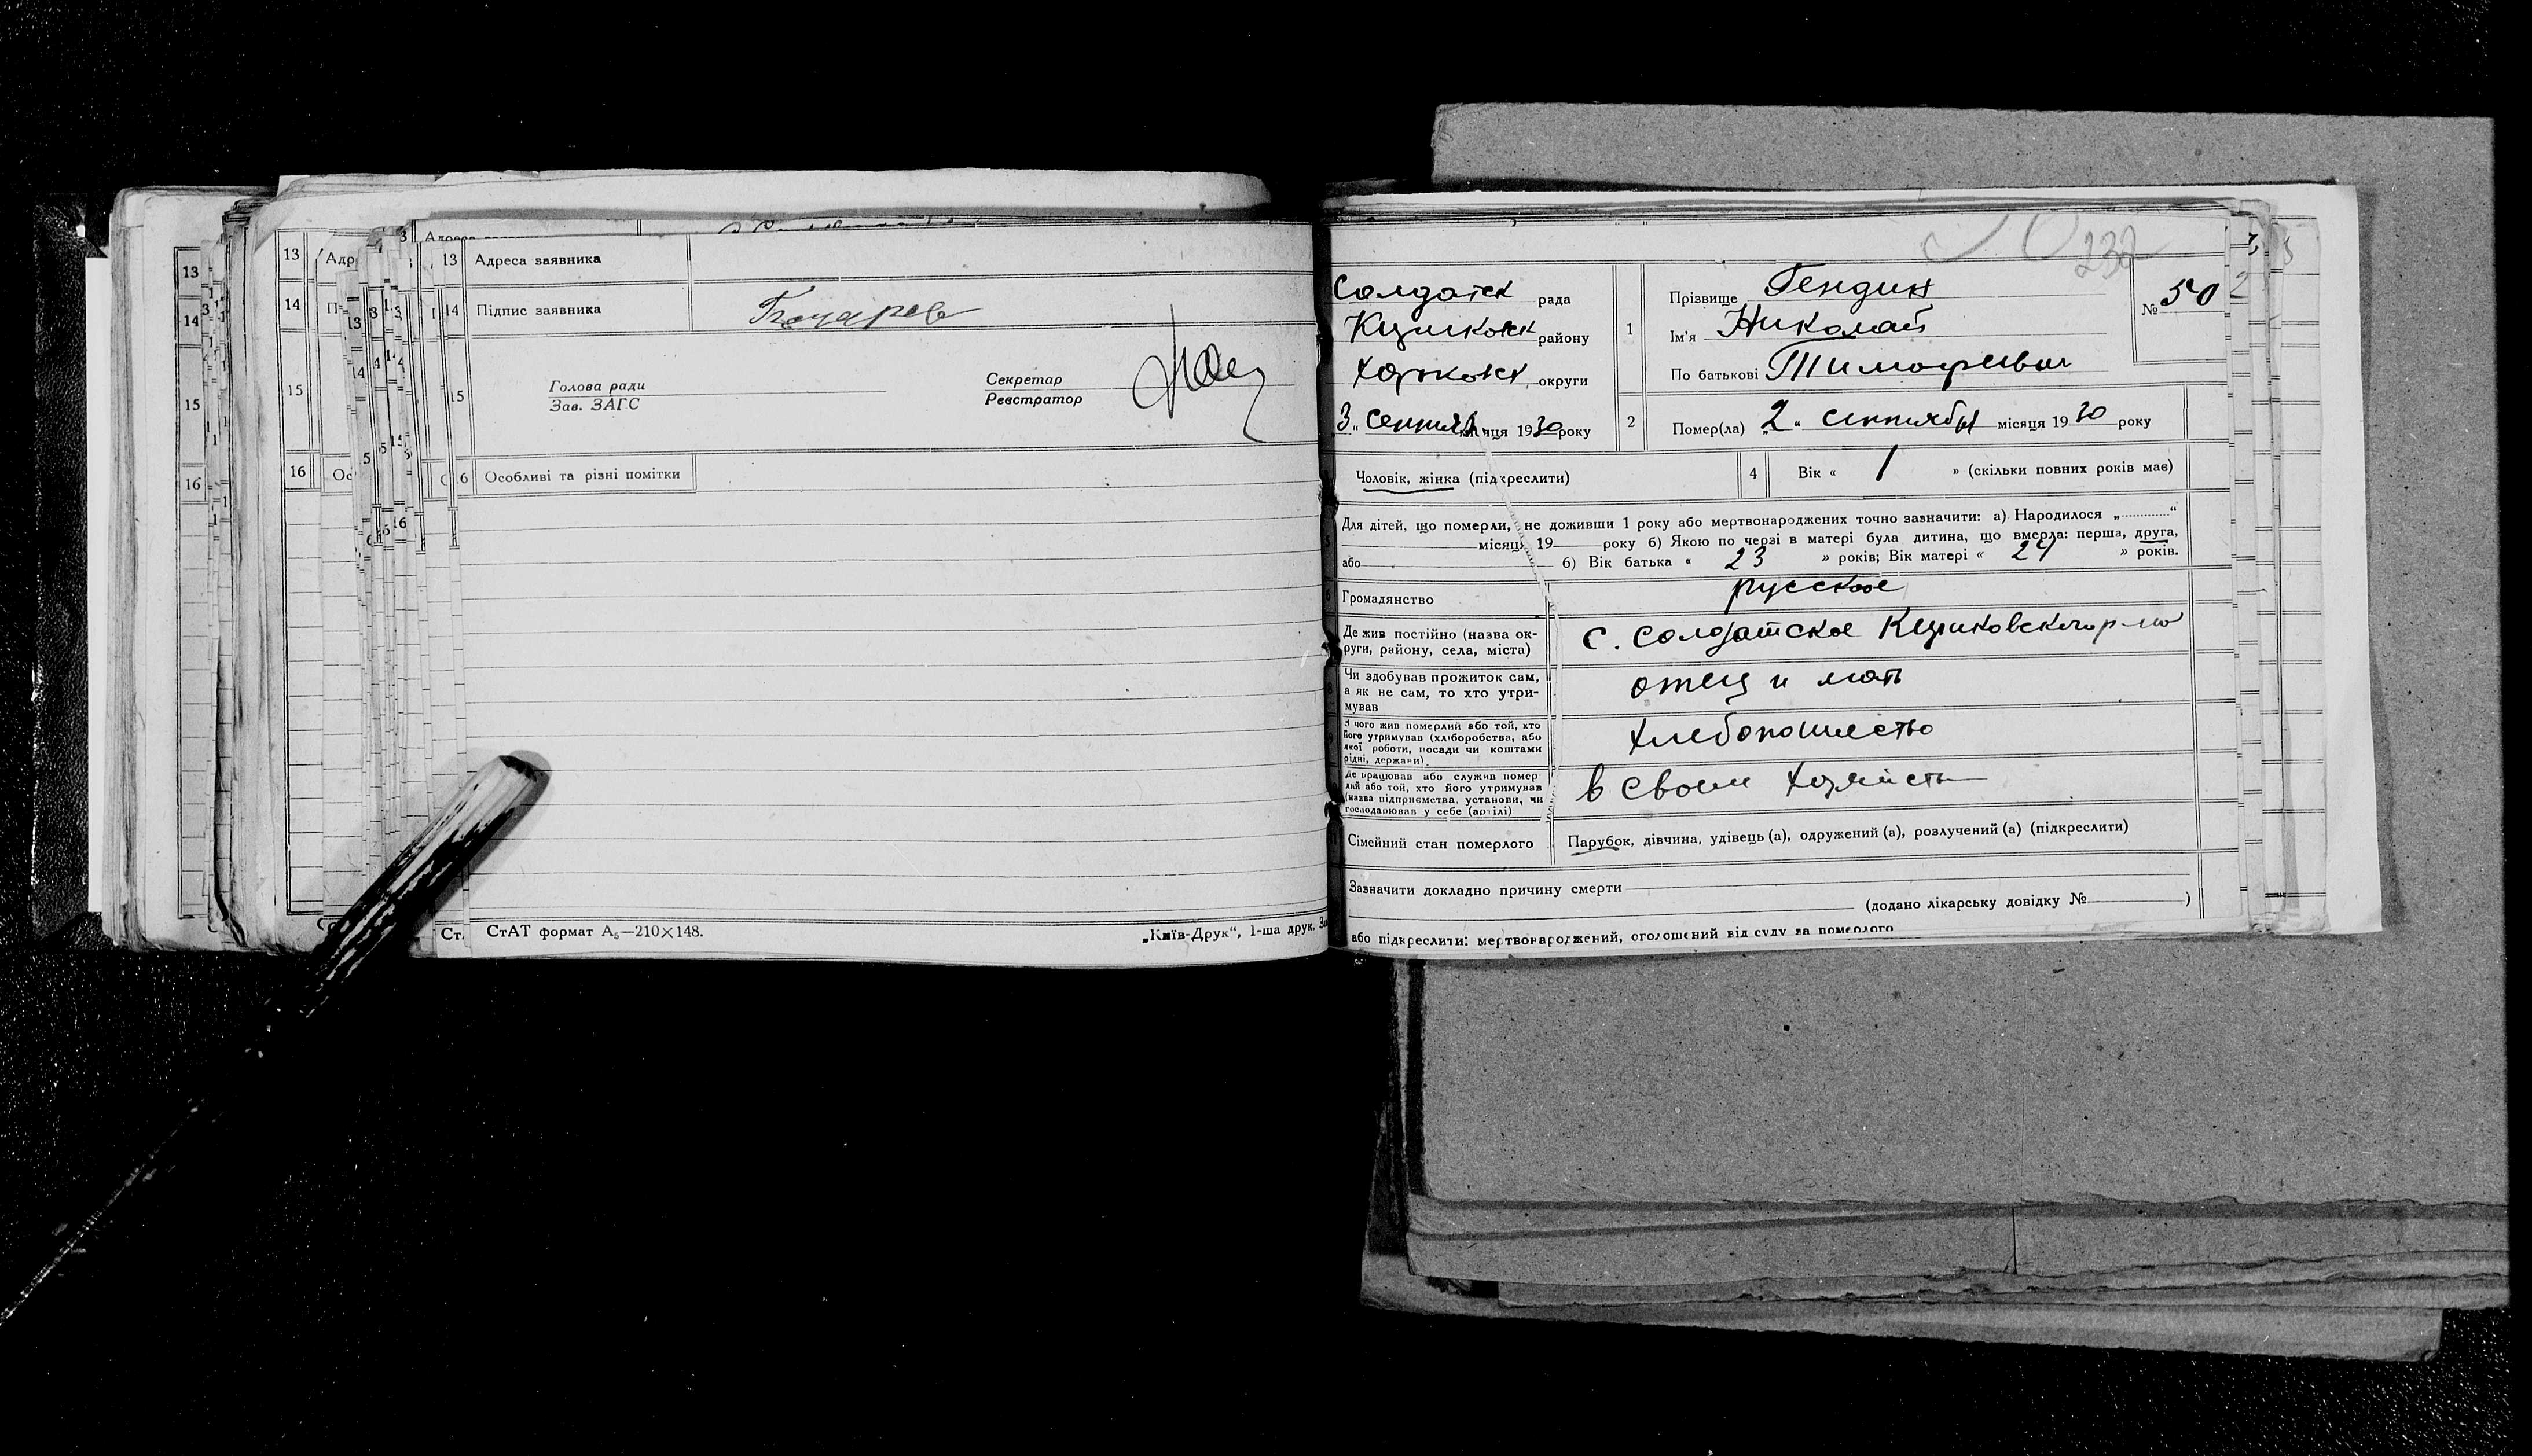 13 Адреса заявника
14 Підпис заявника Гончарев
15 Голова ради
Зав. ЗАГС
Секретар
Реєстратор
16 Особливі та різні помітки
СтАТ формат А₅—210×148.
„Київ-Друк“, 1-ша друк.
232
Солдатск рада
района району
Харьковск округи
3 „ Сентяб місяця 1930 року
1 Прізвище Гендин
Ім'я Николай
По батькові Тимофеевич
№ 50
2 Помер(ла) „2“ сентября місяця 1930 року
Чоловік, жінка (підкреслити)
4 Вік « 1 » (скільки повних років має)
Для дітей, що померли, не доживши 1 року або мертвонароджених точно зазначити: а) Народилося „............“
місяця 19 року б) Якою по черзі в матері була дитина, що вмерла: перша, друга,
або б) Вік батька « 23 » років; Вік матері « 24 » років.
Громадянство русское
Де жив постійно (назва ок-
руги, району, села, міста)
с. Солдатское
Чи здобував прожиток сам,
а як не сам, то хто утри-
мував
отец и мать
З чого жив померлий або той, хто
його утримував (хліборобства, або
якої роботи, посади чи коштами
рідні, держави)
хлебопашество
Де працював або служив помер
лий або той, хто його утримував
(назва підприємства, установи, чи
господарював у себе (артілі)
в своем хозяйств
Сімейний стан померлого
Парубок, дівчина, удівець (а), одружений (а), розлучений (а) (підкреслити)
Зазначити докладно причину смерти
(додано лікарську довідку № )
або підкреслити: мертвонароджений, оголошений від суду за померлого